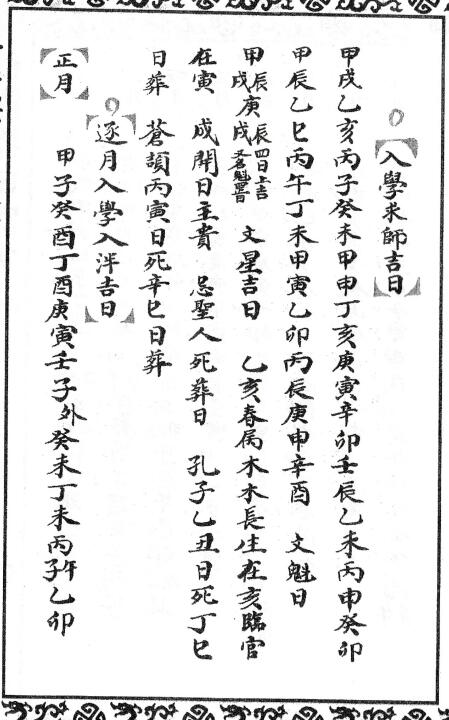 入學求師吉日
甲戌乙亥丙子癸未甲申丁亥庚寅辛卯壬辰乙未丙申癸卯
甲辰乙巳丙午丁未甲寅乙卯丙辰庚申辛酉 文魁日
甲辰戌庚辰戌四日上吉 文星吉日 乙亥春屬木木長生在亥臨官
在寅 成開日主貴 忌聖人死葬日 孔子乙丑日死丁巳
日葬 蒼頡丙寅日死辛巳日葬
逐月入學入泮吉日
正月 甲子癸酉丁酉庚寅壬子外癸未丁未丙子午乙卯